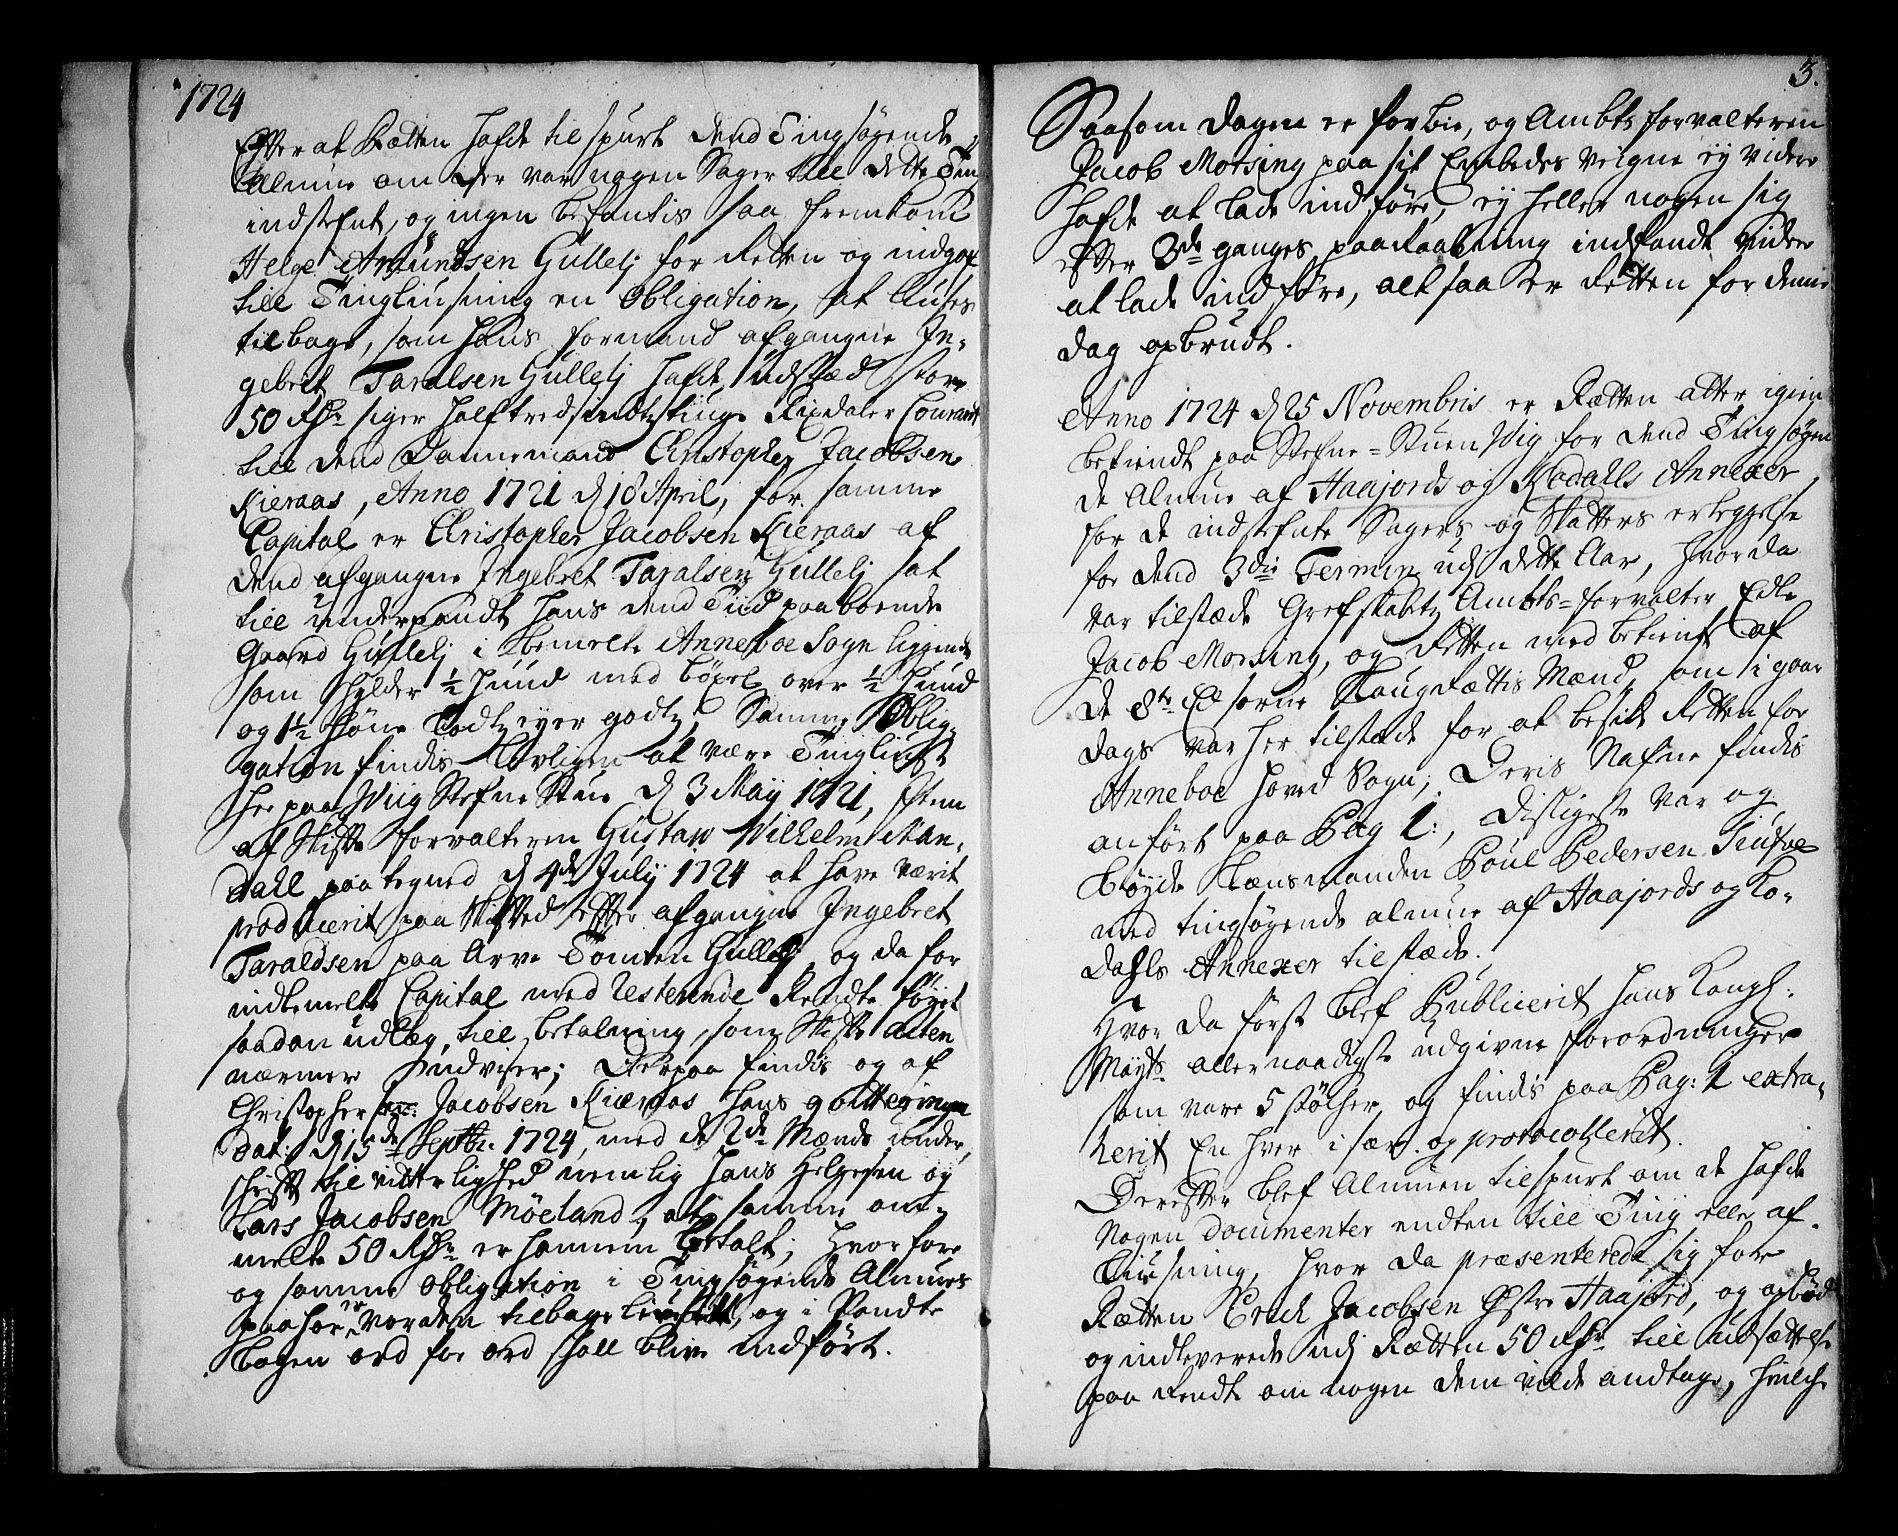 1724
Efter at Rætten hafde tilspurt dend Tingsøgende
Almue om der var nogen Sager till dette Ting
indstefnt, og ingen befantis saa fremkom
Helge Amundsen Gullelj for Retten og indgaf
till Tingliusning en Obligation, at liuses
tilbage, som hans formand afgangne In-
gebret Taralsen Gullelj hafde udstæd stor
50 Rdr siger halftredsindstiuge Rixdaler Courant
till dend Dannemand Christopher Jacobsen
Kieraas, Anno 1721 d 18 April, for samme
Capital er Christopher Jacobsen Kieraas af
dend afgangne Ingebret Taralsen Gullelj sat
till underpandt hans dend Tiid paaboende
Gaard Gullelj i bemelte Anneboe Sogn liggende
som schylder ½ huud med böxel over ½ huud
og 1½ schøne godtz. Samme Oblig-
gation findis Lovligen at være Tingliust
her paa Wiig Stefne Stue d 3 Maij 1721, Item
af Skifte forvalteren Gustaw Wilhelm Man-
dall paategned d 4de Julij 1724 at have værit
producerit paa Skifted efter afgangne Ingebret
Taraldsen paa Arve Tomten Gullelj, og da for
indbemelte Capital med resterende Rendte føyet
saadan udlæg till betalning, som Skifte acten
nærmer udviser; Derpaa findis og af
Christopher Jacobsen Kieraas hans qvittering
dat: d 15de Septbr. 1724, med de 2de Mænds under-
schrift til vitterlighed nemlig Hans Helgesen og
Lars Jacobsen Möeland, at samme om-
melte 50 Rdr er hannem betalt; Hvorfore
og samme obligation i Tingsøgende Almues
paahør vorden tilbage liust, og i Pandte
bogen ord for ord schall blive indført.
3.
Saasom dagen er forbie, og Ambtsforvalteren
Jacob Morsing paa sit Embedes veigne ey videre
hafde at lade indføre, ey heller nogen sig
efter 3de ganges paaraabning indfandt videre
at lade indføre, alt saa er Retten for denne
dag opbrudt.
Anno 1724 d 25 Novembris er Rætten atter igien
betiendt paa Stefne=Stuen Wig for dend Tingsøgen
de Almue af Haajords og Kodahls Annexer,
for de indstefnte Sagers og Skatters erleggelse
for dend 3die Termin udj dette Aar, hvor da
var tilstæde Grefskabets Ambts=forvalter Edle
Jacob Morsing, og Retten med betient af
de 8te Ed sorne Laugrættis Mænd, som i gaar
dags var her tilstæde for at besidde Retten for
Anneboe Hoved Sogn; Deris Nafne findis
anført paa Pag 1:, disligeste var og
Bøyde Lænsmanden Poul Pedersen Tiufve
med tingsøgende almue af Haajords og Ko-
dahls Annexer tilstæde.
Hvor da først blef Publicerit Hans Kongl:
Mayts allernaadigste udgivne forordninger
som vare 5 støcher, og findis paa Pag: 1 extra-
herit En hver i sær og protocollerit.
Derefter blef Almuen tilspurt om de hafde
Nogen documenter endten till Ting eller af-
liusning, hvor da præsenterede sig for
Rætten Erich Jacobsen Østre Haajord, og opbød
og indleverede udj Rætten 50 Rdr till udsættelse
paa Rendte om nogen dem vilde andtage, hvilche